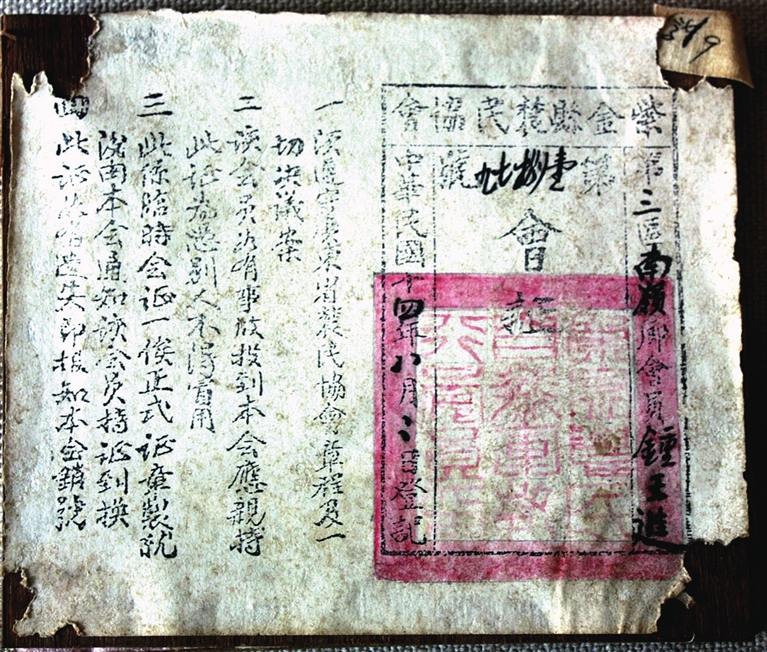 紫金縣農民協會
第三區南嶺鄉會員鍾王進
第號
會証
中華民國十四年八月日登記
一 須遵守廣東省農民協會章程及一
切決議案
二 该会员如有事故投到本会應親持
此证為憑別人不得冒用
三 此係臨時会证一俟正式证章製就
後由本会通知该会员持证到换
四 此证如有遺失即报知本会銷號